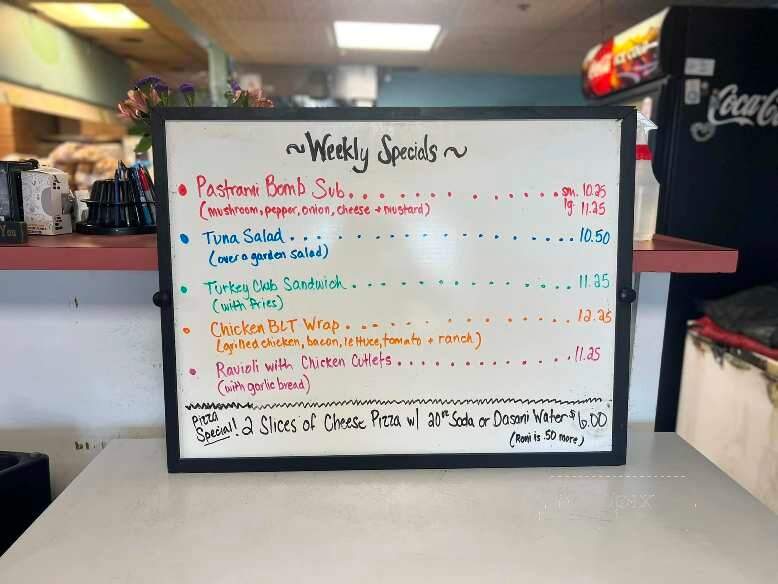 ~Weekly Specials~
• Pastrami Bomb Sub............sm. 10.25
(mushroom, pepper, onion, cheese + mustard) lg 11.25
• Tuna Salad............10.50
(over a garden salad)
• Turkey Club Sandwich............11.25
(with fries)
• Chicken BLT Wrap............12.25
(grilled chicken, bacon, lettuce, tomato + ranch)
• Ravioli with Chicken Cutlets............11.25
(with garlic bread)
Pizza Special! 2 Slices of Cheese Pizza w/ 20oz Soda or Dasani Water $6.00
(Roni is .50 more)
Coca-Cola
You